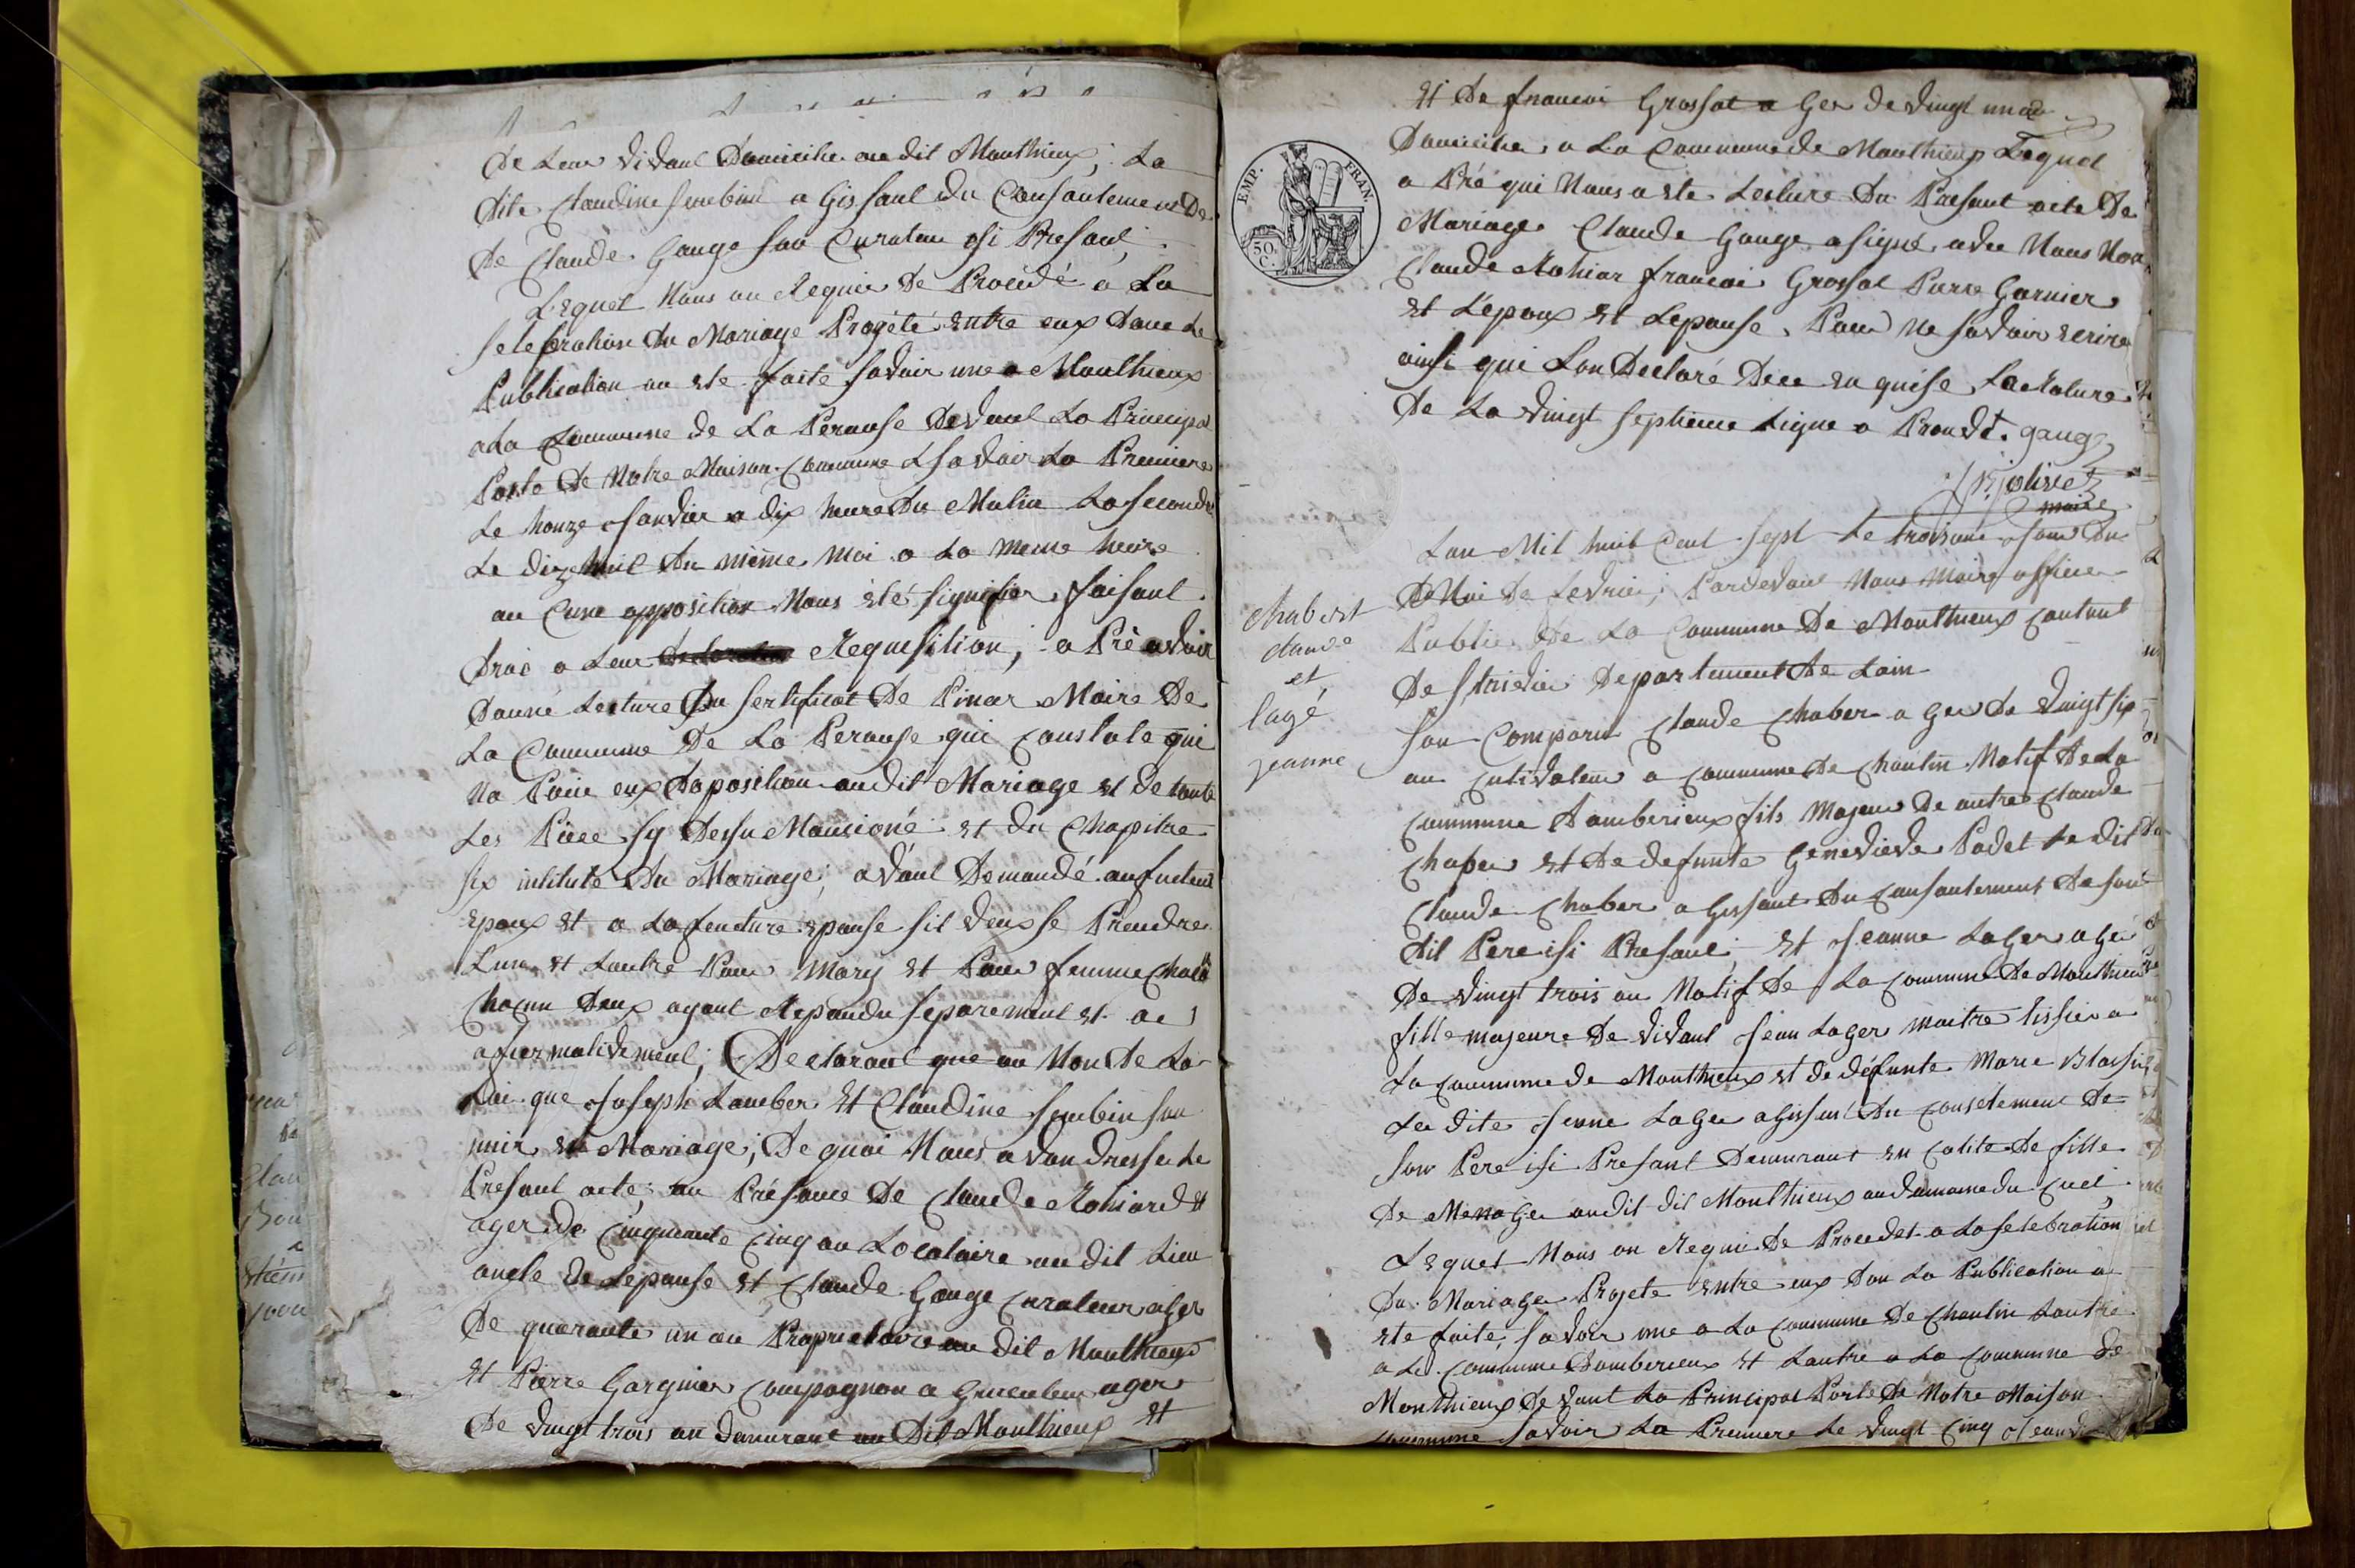 De Leur vivant Domicilie au dit Monthieux; La
dite Claudine Sembin a Gissant du Consantement De
De Claude Gauge son Curateur isi Presant;
Lequel Nous on Requie De Procédé a La
selebration du Mariage Progeté Entre eux dont Le
Publication on ete faite savoir une a Monthieux
a La Commune de La Perouse Devant La Principal
Porte De Notre Maison Commune Savoir La Premiere
Le honze Janvier a dix heure Du Matin La Seconde
Le dizehuit du même moi a La meme heure
au Cune opposition Nous été signifier, faisant
Droit a Leur Requisition; a Prè avoir
Donné Lecture Du sertificat De Pinar Maire De
La Commune De La Perouse qui Constate qui
Na Poin eux Doposition audit Mariage et de toute
Les Piece sy Dessu Mansioné et du Chapitre
six intitule Du Mariage; avant Demandé au futeur
epoux et a La feuture epouse sil veux se Prendre
Lun et Lautre Pour Mary et Pour femme
Chacun Deux ayant Repondu separement et
afirmativement; Declarant que au Non De La
Loi que Joseph Lamber Et Claudine Sembin son
unir en Mariage; De quoi Nous avon dresser Le
Presant acte; en Présance De Claude Rohiard
ager de Cinquante Cinq an Locataire audit Lieu
oncle de Lepouse et Claude Gauge Curateur ager
De quarante un an Proprietaire au dit Monthieux
et Pierre Gargnier Compagnon ager
De vingt trois an demurant au Dit Monthieux Et
Et De francoi Grossat a Ger de vingt un an
Domicilier a La Commune de Monthieux Lequel
a Pré qui Nous a ete Lecture Du Presant acte De
Mariage Claude Gauge a signé avec Nous Non
Claude Rohiar francoi Grossat Pierre Garnier
et Lepoux et Lepouse, Pour Ne savoir ecrire
ainsi qui Lon Declaré De ce enquise La Rature
De La vingt septieme Ligne a Prouvé. gauge
Jolivet
maire
EMP. FRAN.
50 C.
chabert
claude
et
lagé
jeanne
Lan Mil huit Cent sept Le troisieme jour Du
Moi De fevrier; Pardevant Nous Maire officier
Public De La Commune De Monthieux Cantont
De strivier Departement De Lain
Son Comparu Claude Chaber a Ger De vingt six
an Cultivateur a Commune De Chantin Natif De La
Commune Damberieux fils Majeur De autre Claude
Chaber et De defunte Genevieve Podet Le dit
Claude Chaber a Gissant Du Consantement De son
dit Pere isi Presant; Et Jeanne Lager agé
De vingt trois an Natif De La Commune De Monthieux
fille majeure De vivant Jean Lager maitre tissier a
La Commune de Monthieux et de défunte Marie
La dite Jenne Lager agissant Du Consetement De
son Pere isi Presant Demurant en Calite De fille
De Menager audit dit Monthieux au domaine du
Lequel Nous on Requie De Proceder a La selebration
Du Mariage Projete Entre eux Don La Publication a
ete faite, savoir une a La Commune De Chantin Lautre
a La Commune Damberieux et Lautre a La Commune De
Monthieux Devant La Principal Porte De Notre Maison
Commune Savoir La Premiere Le vingt Cinq